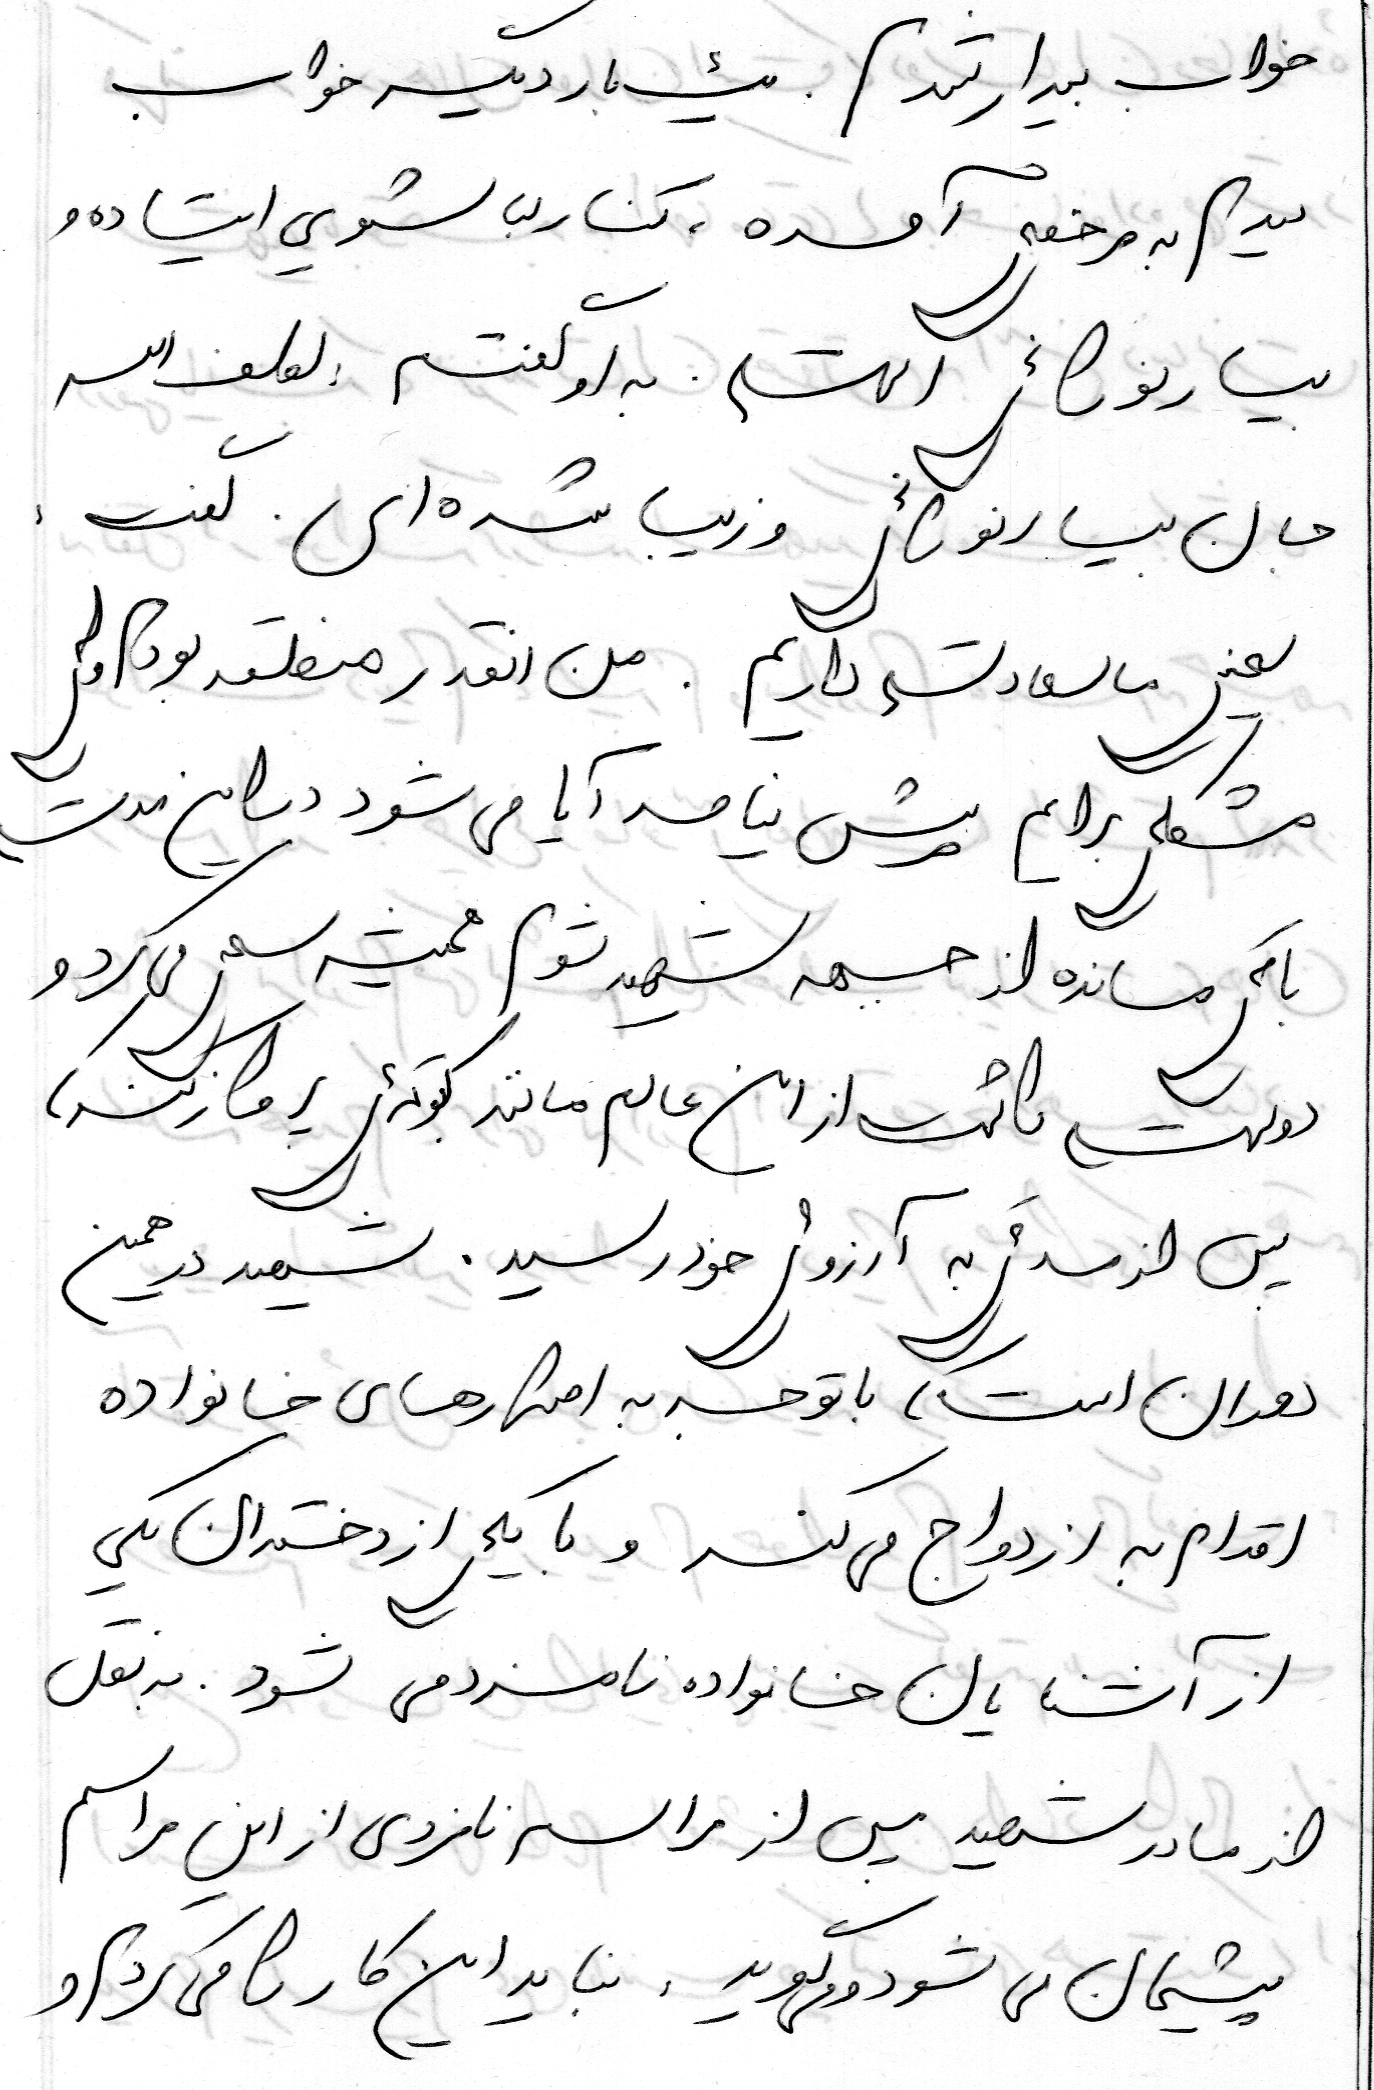 خواب بیدار شدم. یک بار دیگر خواب
دیدم به مرخصی آمده، کنار لباسشویی ایستاده و
بسیار نورانی است. به او گفتم: لطف الله
جان بسیار نورانی و زیبا شده‌ای. گفت:
یعنی ما سعادتش داریم. من آنقدر منطقه بودم ولی
مشکلی برایم پیش نیامد آیا می‌شود در این مدت
باقی مانده از جبهه شهید شوم همیشه سعی می‌کرد و
دوست داشت از این عالم مانند کبوتری پرواز کند،
پس از مدتی به آرزوی خود رسید. شهید در همین
دوران است که با توجه به اصرارهای خانواده
اقدام به ازدواج می‌کند و با یکی از دختران یکی
از آشنایان خانواده نامزد می‌شود. به نقل
از مادر شهید پس از مراسم نامزدی از این مراسم
پشیمان می‌شود و می‌گوید: نباید این کار را می‌کردم و